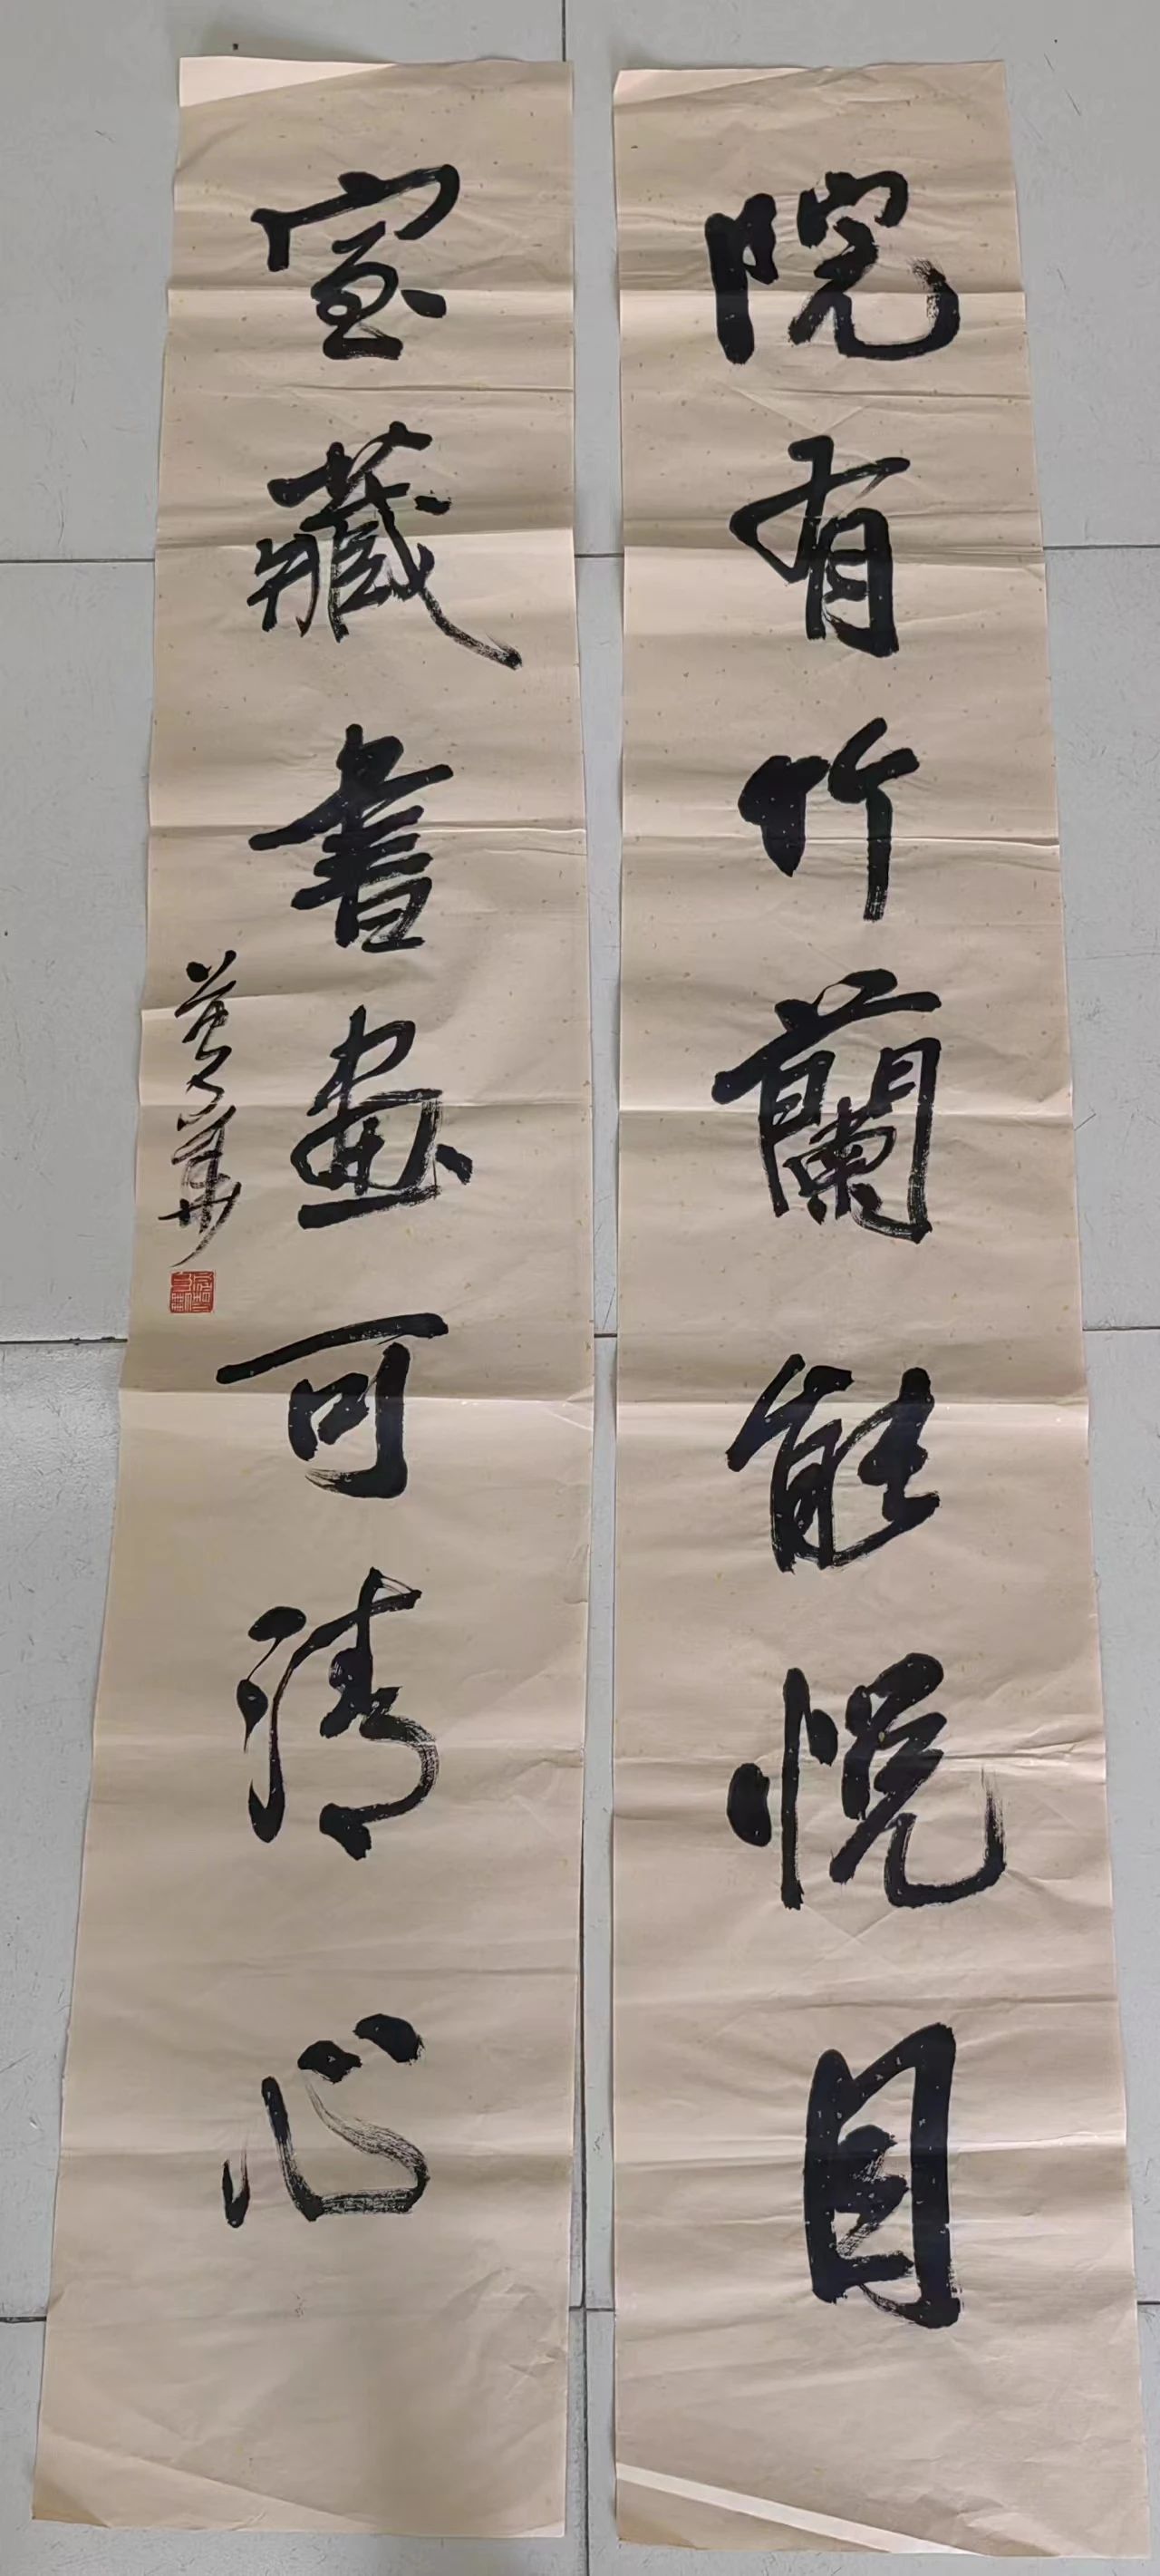 院有竹蘭能悦目
室藏書画可清心